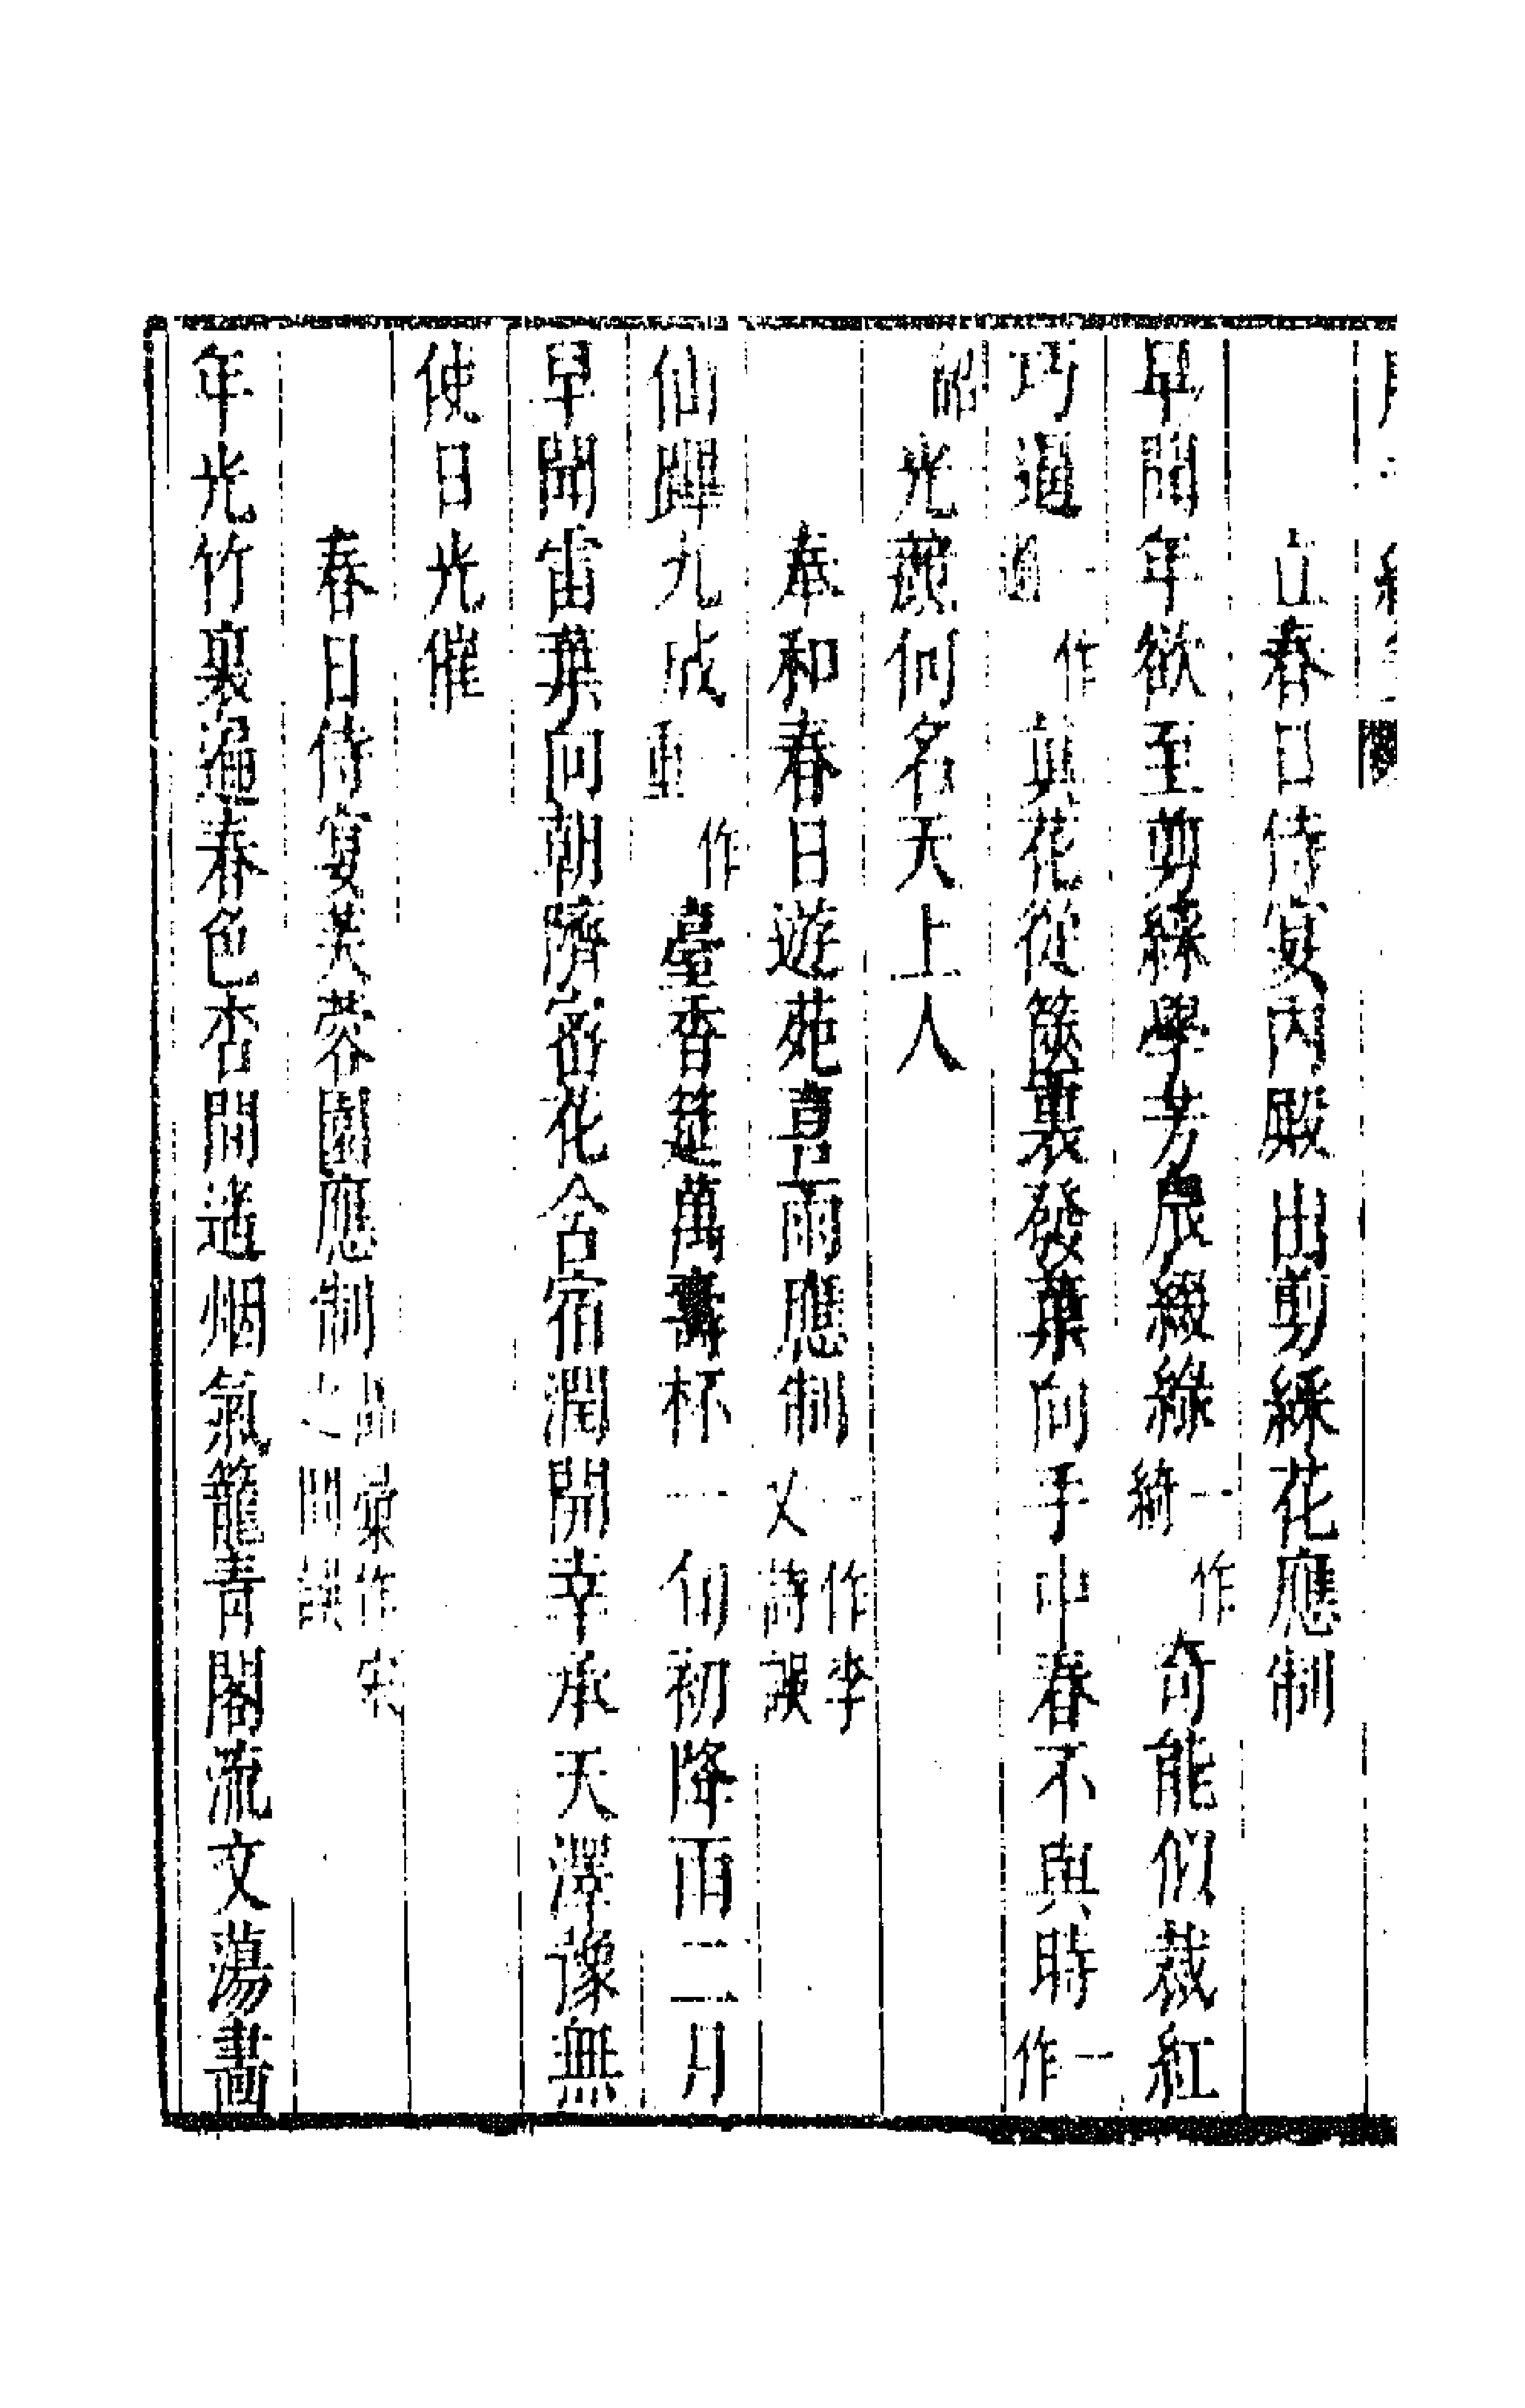 立春日侍宴內殿出剪綵花應制
早聞年欲至剪綵學芳辰綴綠一作綺奇能似裁紅
巧過一作逼真花從篋裏發葉向手中春不與時一作
韶光競何名天上人
奉和春日遊苑喜雨應制一作李乂詩誤
仙蹕九成一作重臺香筵萬壽杯一旬初降雨二月
早聞雷葉向朝隮密花含宿潤開幸承天澤豫無
使日光催
春日侍宴芙蓉園應制品彙作宋之問誤
年光竹裏遍春色杏間遙烟氣籠青閣流文蕩畫